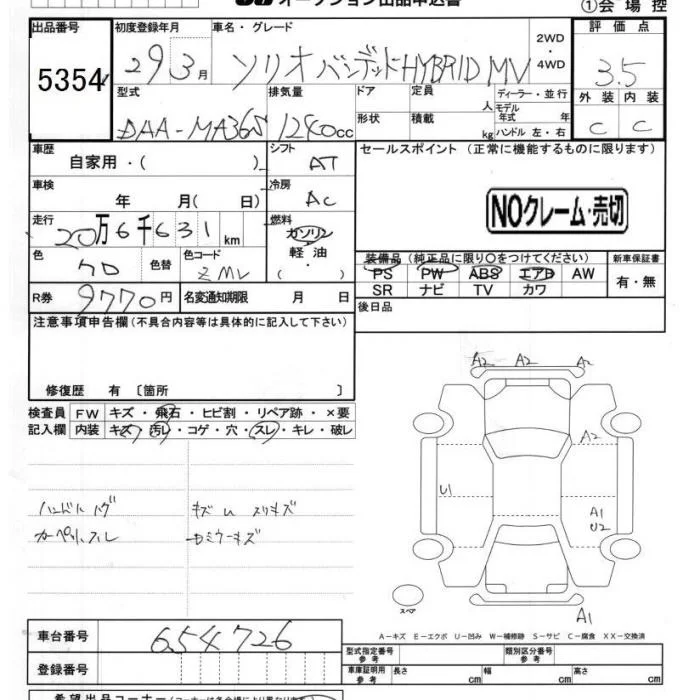 オークション出品申込書
①会場控
出品番号 初度登録年月 車名・グレード 評価点
5354 29 3月 ソリオバンデッドHYBRID MV 2WD・4WD 3.5
型式 排気量 ドア 定員 人 ディーラー・並行 外装 内装
DAA-MA36S 1240cc 形状 積載 kg モデル年式 年 ハンドル 左・右 C C
車歴 自家用・( ) シフト AT セールスポイント (正常に機能するものに限ります)
車検 年 月( 日) 冷房 AC
NOクレーム・売切
走行 20万6千631km 燃料 ガソリン 軽油 ( )
色 クロ 色替 色コード ZMV
装備品 (純正品に限り○をつけてください) 新車保証書
PS PW ABS エアB AW 有・無
SR ナビ TV カワ
R券 9770円 名変通知期限 月 日 後日品
注意事項申告欄(不具合内容等は具体的に記入して下さい)
修復歴 有 〔箇所 〕
検査員 FW キズ・飛石・ヒビ割・リペア跡・×要
記入欄 内装 キズ・汚レ・コゲ・穴・スレ・キレ・破レ
A2 A2 A2
A2
U1
A1
U2
スペア
A1
カーペットスレ
A-キズ E-エクボ U-凹み W-補修跡 S-サビ C-腐食 XX-交換済
車台番号 654726
型式指定番号 参考 類別区分番号 参考
登録番号
車庫証明用 参考 長さ cm 幅 cm 高さ cm
希望出品コーナー